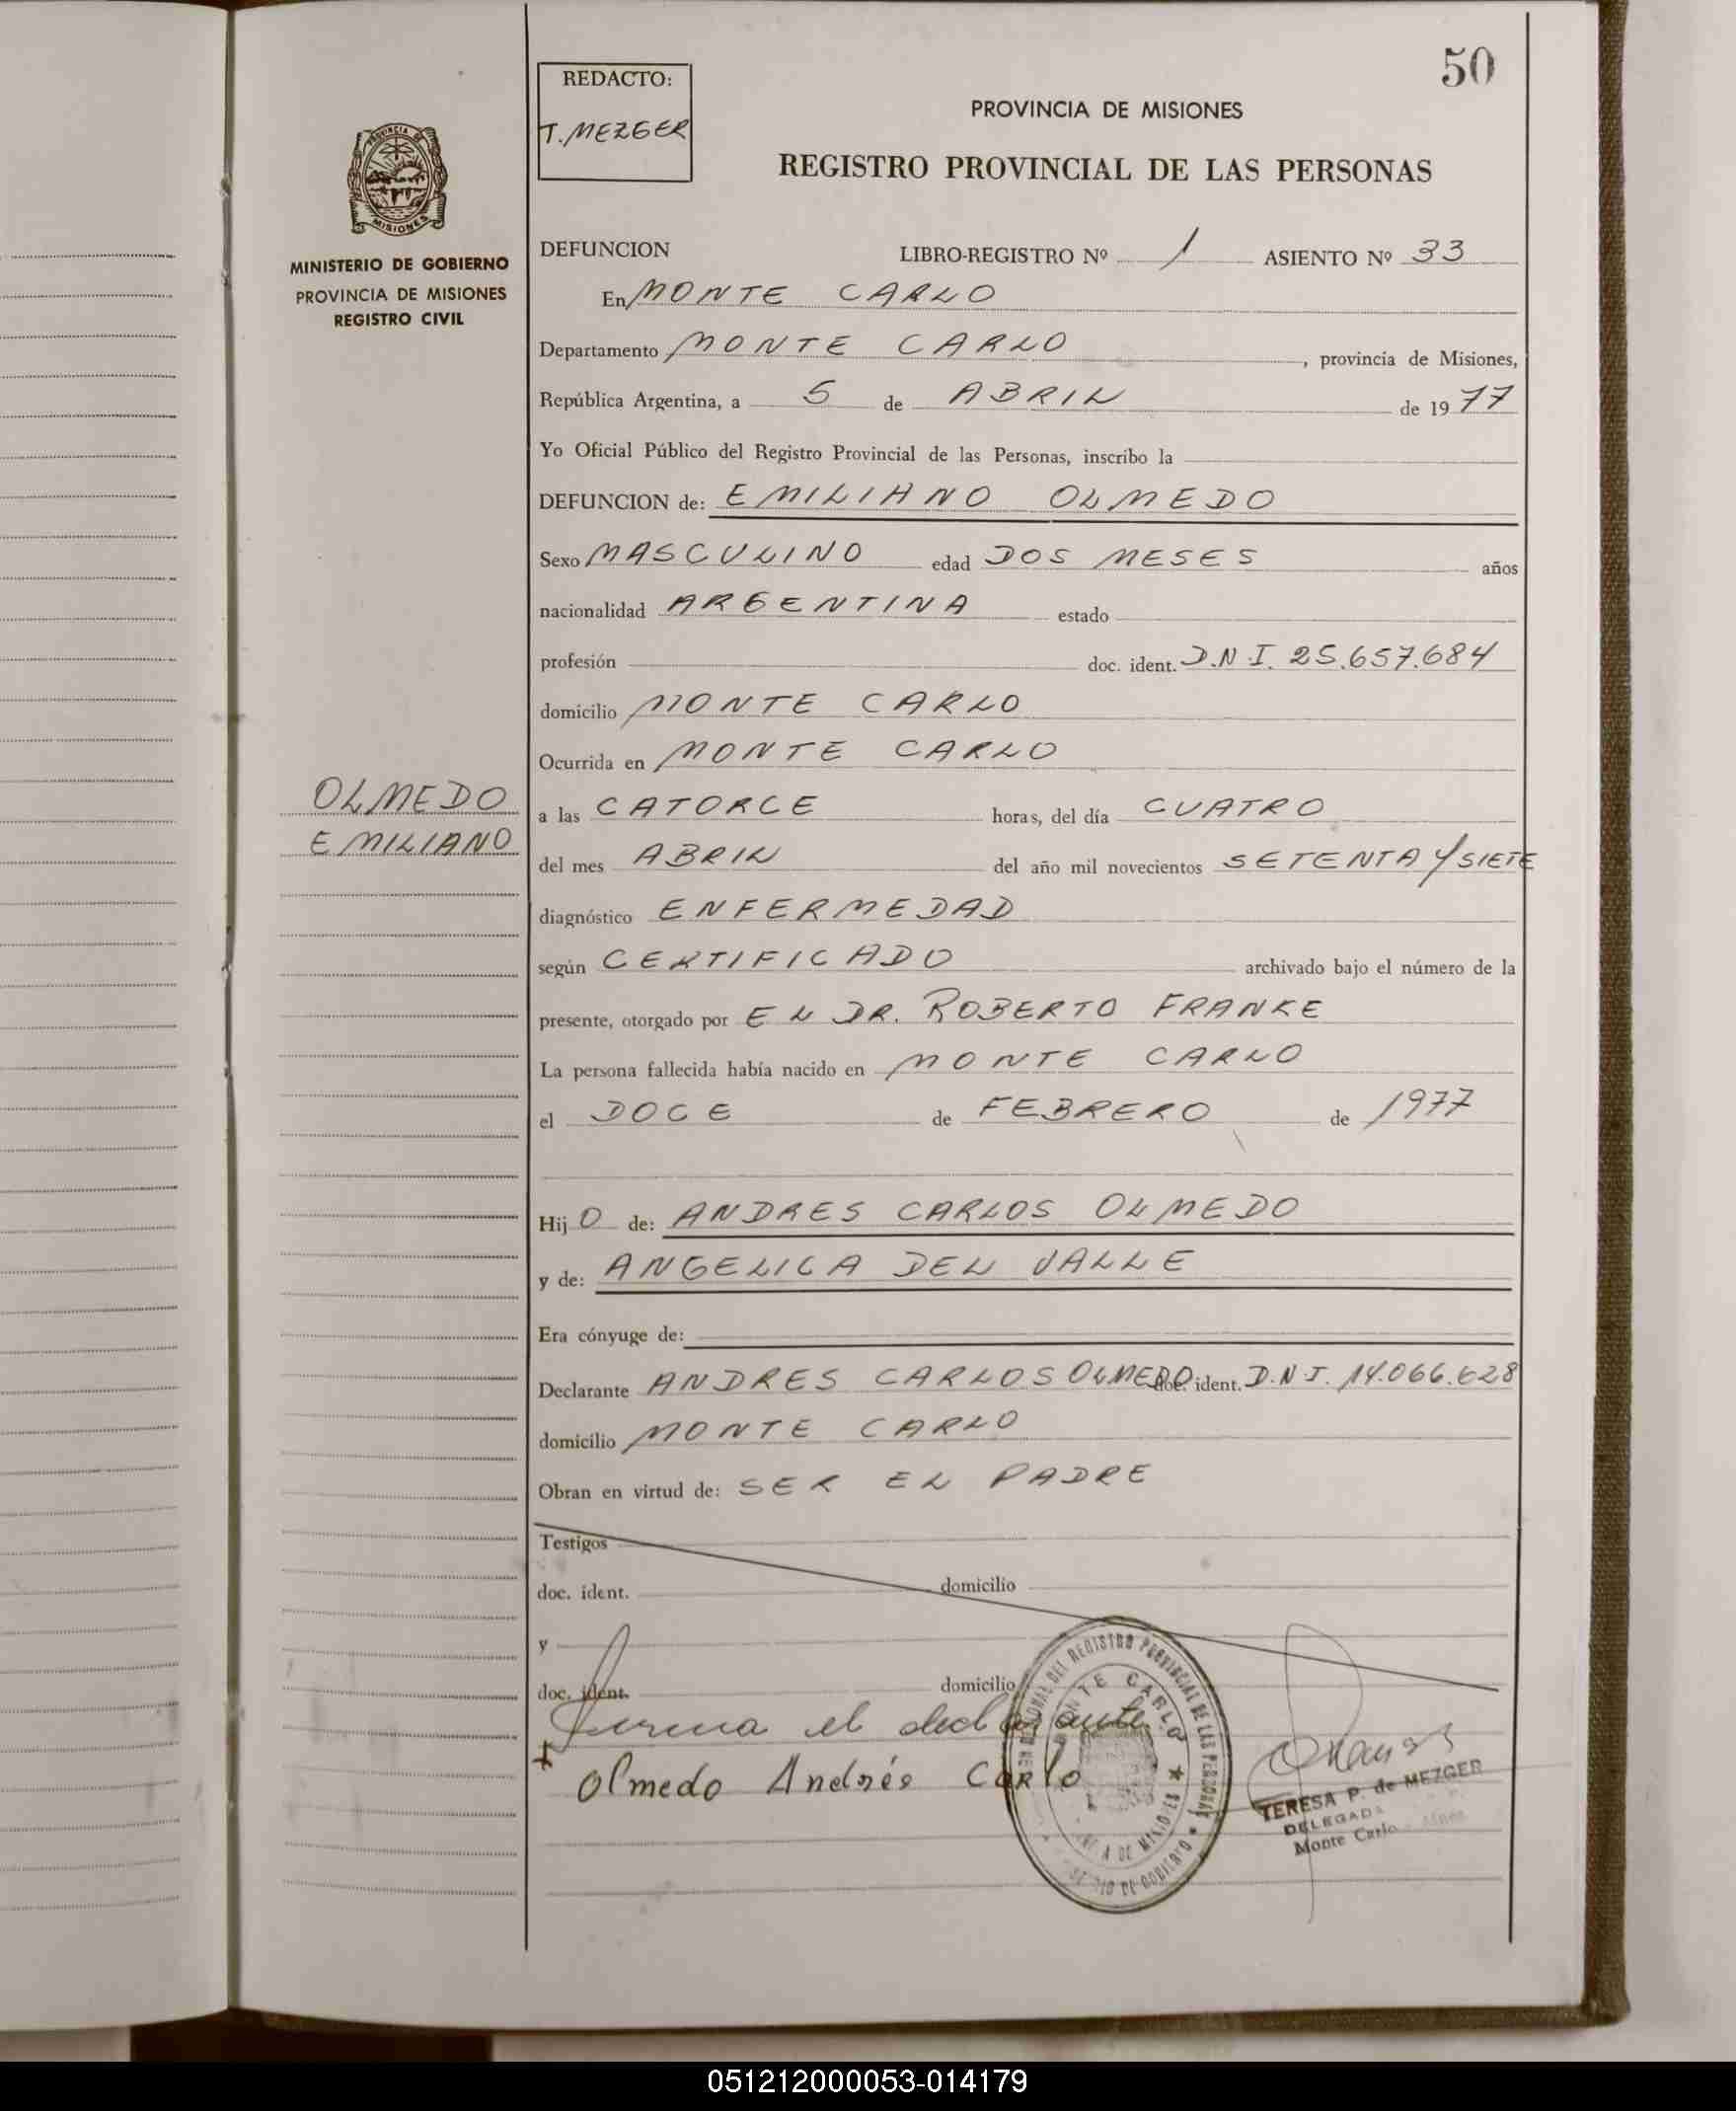 50
REDACTO:
T. MEZGER
PROVINCIA DE MISIONES
REGISTRO PROVINCIAL DE LAS PERSONAS
PROVINCIA DE
MISIONES
MINISTERIO DE GOBIERNO
PROVINCIA DE MISIONES
REGISTRO CIVIL
DEFUNCION LIBRO-REGISTRO Nº 1 ASIENTO Nº 33
En MONTE CARLO
Departamento MONTE CARLO, provincia de Misiones,
República Argentina, a 5 de ABRIL de 1977
Yo Oficial Público del Registro Provincial de las Personas, inscribo la
DEFUNCION de: EMILIANO OLMEDO
Sexo MASCULINO edad DOS MESES años
nacionalidad ARGENTINA estado
profesión doc. ident. D.N.I. 25.657.684
domicilio MONTE CARLO
Ocurrida en MONTE CARLO
OLMEDO
EMILIANO
a las CATORCE horas, del día CUATRO
del mes ABRIL del año mil novecientos SETENTA Y SIETE
diagnóstico ENFERMEDAD
según CERTIFICADO archivado bajo el número de la
presente, otorgado por EL DR. ROBERTO FRANKE
La persona fallecida había nacido en MONTE CARLO
el DOCE de FEBRERO de 1977
Hij O de: ANDRES CARLOS OLMEDO
y de: ANGELICA DEL VALLE
Era cónyuge de:
Declarante ANDRES CARLOS OLMEDO doc. ident. D.N.I. 14.066.628
domicilio MONTE CARLO
Obran en virtud de: SER EL PADRE
Testigos
doc. ident. domicilio
y
doc. ident. domicilio
Firma el declarante
+ Olmedo Andrés Carlo
DEL REGISTRO PROVINCIAL DE LAS PERSONAS
MONTE CARLO
DE MISIONES
DE GOBIERNO
TERESA P. de MEZGER
DELEGADA
Monte Carlo
051212000053-014179